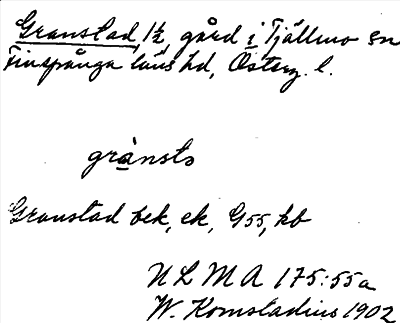 Granstad, 1½, gård i Tjällmo sn
Finspånga läns hd, Österg. l.
grànsta
Granstad bek, ek, G55, kb
N L M A 175:55a
W. Komstadius 1902